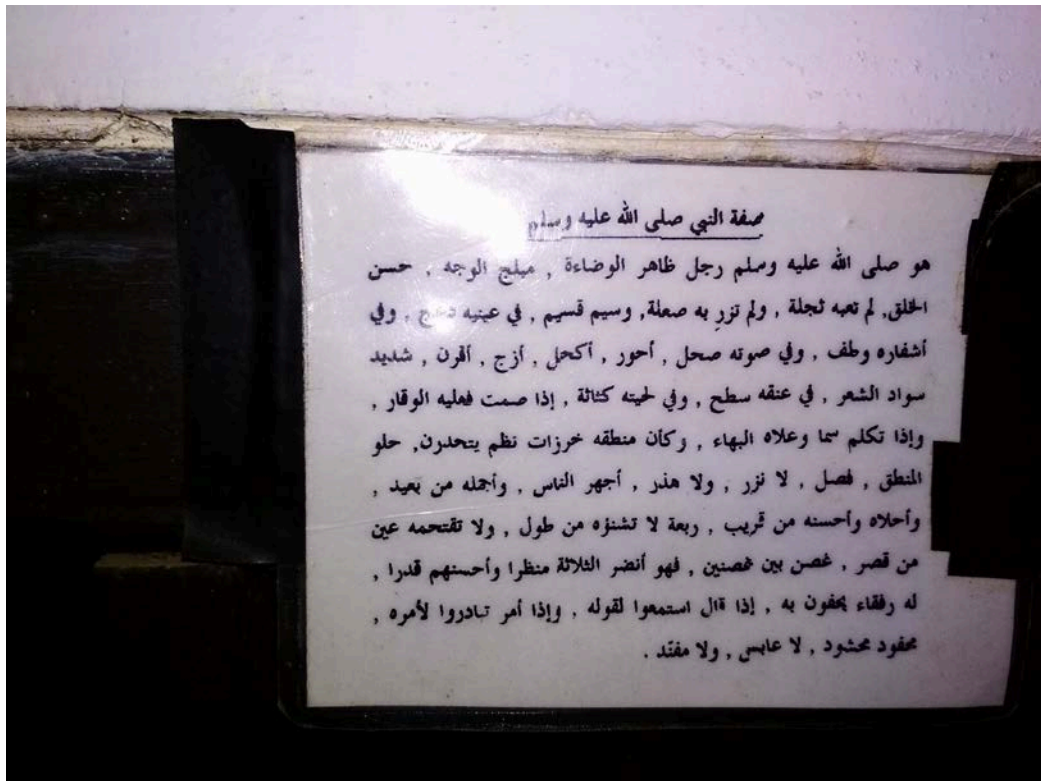 صفة النبي صلى الله عليه وسلم
هو صلى الله عليه وسلم رجل ظاهر الوضاءة , مبلج الوجه , حسن
الخلق, لم تعبه ثجلة , ولم تزرِ به صعلة, وسيم قسيم , في عينيه دعج , وفي
أشفاره وطف , وفي صوته صحل , أحور , أكحل , أزج , أقرن , شديد
سواد الشعر , في عنقه سطح , وفي لحيته كثاثة , إذا صمت فعليه الوقار ,
وإذا تكلم سما وعلاه البهاء , وكأن منطقه خرزات نظم يتحدرن, حلو
المنطق , فصل , لا نزر , ولا هذر , أجهر الناس , وأجمله من بعيد ,
وأحلاه وأحسنه من قريب , ربعة لا تشنؤه من طول , ولا تقتحمه عين
من قصر , غصن بين غصنين , فهو أنضر الثلاثة منظرا وأحسنهم قدرا ,
له رفقاء يحفون به , إذا قال استمعوا لقوله , وإذا أمر تبادروا لأمره ,
محفود محشود , لا عابس , ولا مفنّد .